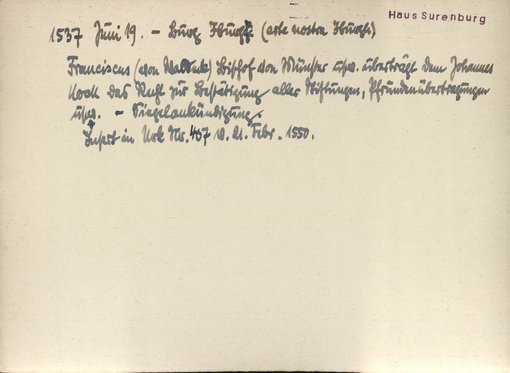 Haus Surenburg
1537 Juni 19. - Burg Iburg (arte nostra Iburgh.)
Franciscus (von Waldeck) Bischof von Münster usw. überträgt dem Johannes
Kock das Recht zur Bestätigung aller Stiftungen, Pfründenübertragungen
usw. - Siegelankündigung.
Insert in Urk Nr. 407 v. 21. Febr. 1550.